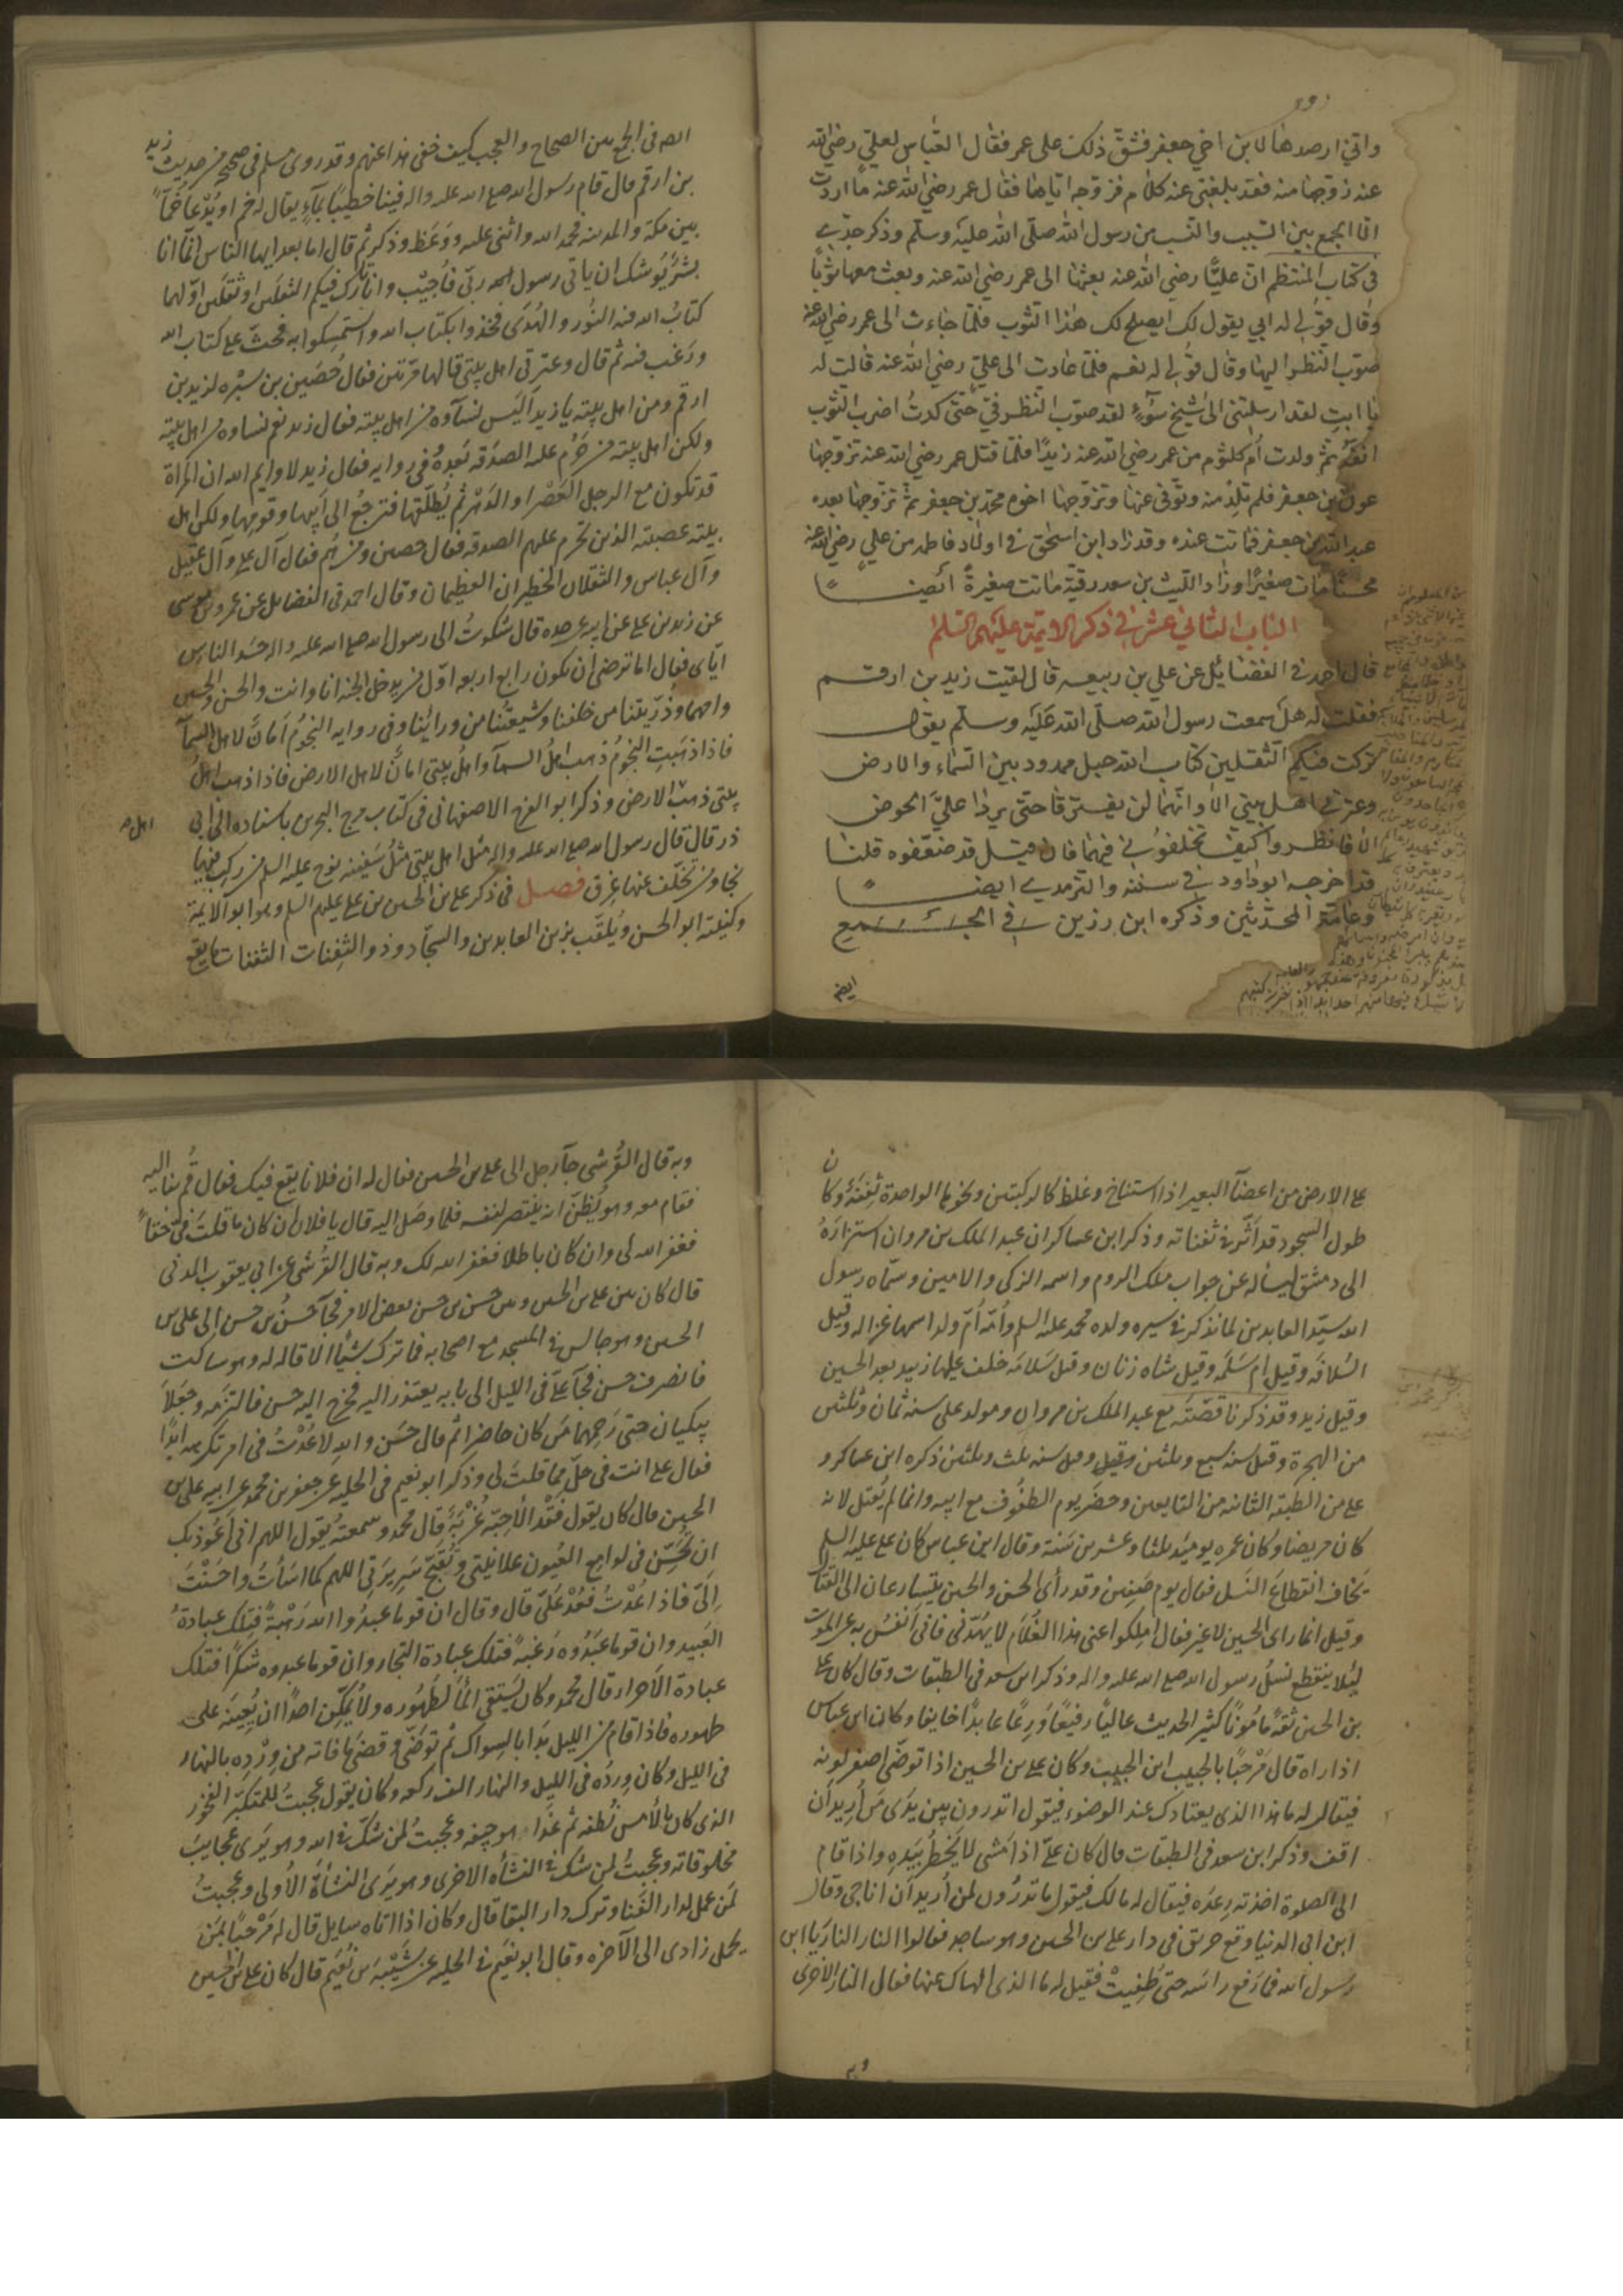 واني ارصدها لابن اخي جعفر فشق ذلك على عمر فقال العباس لعلي رضي الله
عنه زوجها منه فقد بلغني عنه كلام فزوجه اياها فقال عمر رضي الله عنه ما اردت
الا الجمع بين السبب والنسب من رسول الله صلى الله عليه وسلم وذكر جدي
في كتاب المنتظم ان عليا رضي الله عنه بعثها الى عمر رضي الله عنه وبعث معها ثوبا
وقال قولي له ابي يقول لك ايصلح لك هذا الثوب فلما جاءت الى عمر رضي الله عنه
صوب النظر اليها وقال قولي له نعم فلما عادت الى علي رضي الله عنه قالت له
يا ابت لقد ارسلتني الى شيخ سوء لقد صوب النظر في حتى كدت اضرب بالثوب
انفه ثم ولدت ام كلثوم من عمر رضي الله عنه زيدا فلما قتل عمر رضي الله عنه تزوجها
عون بن جعفر فلم تلد منه وتوفى عنها وتزوجها اخوه محمد بن جعفر ثم تزوجها بعده
عبد الله بن جعفر فماتت عنده وقد زاد ابن اسحق في اولاد فاطمه من علي رضي الله عنه
محسنا مات صغيرا وزاد الليث بن سعد رقية ماتت صغيرة ايضا
الباب الثاني عشر في ذكر الايمة عليهم السلم
قال احمد في الفضائل عن علي بن ربيعه قال لقيت زيد بن ارقم
فقلت له هل سمعت رسول الله صلى الله عليه وسلم يقول
تركت فيكم الثقلين كتاب الله حبل ممدود بين السماء والارض
وعترتي اهل بيتي الا وانهما لن يفترقا حتى يردا علي الحوض
الا فانظروا كيف تخلفوني فيهما فان قيل قد ضعفوه قلنا
قد اخرجه ابو داود في سننه والترمدي ايضا
وعامة المحدثين وذكره ابن رزين في الجمع
ايضا
الصه في الجمع بين الصحاح والعجب كيف خفى هذا عنهم وقد روى مسلم في صحيحه من حديث زيد
بن ارقم قال قام رسول الله صلى الله عليه واله فينا خطيبا بماء يقال له خم او يدعا خما
بين مكة والمدينه فحمد الله واثنى عليه ووعظ وذكر ثم قال اما بعد ايها الناس انما انا
بشر يوشك ان ياتي رسول ربي فاجيب وانا تارك فيكم الثقلين او ثقلين اولهما
كتاب الله فيه النور والهدى فخذوا بكتاب الله واستمسكوا به فحث على كتاب الله
ورغب فيه ثم قال وعترتي اهل بيتي قالها مرتين فقال حصين بن سبره لزيد بن
ارقم ومن اهل بيته يا زيد اليس نساوه من اهل بيته فقال زيد نعم نساوه من اهل بيته
ولكن اهل بيته من حرم عليه الصدقه بعده في روايه فقال زيد لا وايم الله ان المراة
قد تكون مع الرجل العصر او الدهر ثم يطلقها فترجع الى ابيها وقومها ولكن اهل
بيته عصبته الذين تحرم عليهم الصدقه فقال حصين ومن هم فقال آل علي وآل عقيل
وآل عباس والثقلان الخطيران العظيمان وقال احمد في الفضايل عن عمرو بن موسى
عن زيد بن علي عن ابيه عن جده قال شكوت الى رسول الله صلى الله عليه واله حسد الناس
اياي فقال اما ترضى ان تكون رابع اربعه اول من يدخل الجنه انا وانت والحسن والحسين
وذريتنا من خلفنا وشيعتنا من ورائنا وفي روايه النجوم امان لاهل السمآ
فاذا ذهبت النجوم ذهب اهل السمآ واهل بيتي امان لاهل الارض فاذا ذهب اهل
بيتي ذهب الارض وذكر ابو الفرج الاصفهاني في كتاب مرج البحرين باسناده الى ابي
اهل
ذر قال قال رسول الله صلى الله عليه واله مثل اهل بيتي مثل سفينه نوح عليه السلم من ركب فيها
نجا ومن تخلف عنها غرق فصل في ذكر علي بن الحسين بن علي عليهم السلم وهو ابو الايمة
وكنيته ابو الحسن ويلقب بزين العابدين والسجاد وذو الثفنات الثفنات ما يقع
على الارض من اعضآ البعير اذا استناخ وغلظ كالركبتين ونحوهما الواحدة ثفنة وكان
طول السجود قد اثر في ثفناته وذكر ابن عساكر ان عبد الملك بن مروان استزاره
الى دمشق ليساله عن جواب ملك الروم واسمه الزكي والامين وسماه رسول
الله سيد العابدين لما نذكر في سيره ولده محمد عليه السلم وامه ام ولد اسمها غزاله وقيل
السلافه وقيل ام سلمه وقيل شاه زنان وقيل سلامه خلف عليها زبيد بعد الحسين
وقيل زيد وقد ذكرنا قصته مع عبد الملك بن مروان ومولد علي سنه ثمان وثلثين
من الهجرة وقيل سنه سبع وثلثين وقيل سنه ثلث وثلثين ذكره ابن عساكر و
علي من الطبقه الثانيه من التابعين وحضر يوم الطفوف مع ابيه وانما لم يقتل لانه
كان مريضا وكان عمره يوميذ ثلثا وعشرين سنة وقال ابن عباس كان علي عليه السلم
يخاف انقطاع النسل فقال يوم صفين وقد رأى الحسن والحسين يتسارعان الى القتال
وقيل انما راى الحسين لا غير فقال املكوا عني هذا الغلام لا يهدني فاني انفس به عن الموت
ليلا ينقطع نسل رسول الله صلى الله عليه واله وذكر ابن سعد في الطبقات وقال كان علي
بن الحسين ثقة مامونا كثير الحديث عاليا رفيعا ورعا عابدا خايفا وكان ابن عباس
اذا راه قال مرحبا بالحبيب ابن الحبيب وكان علي بن الحسين اذا توضى اصفر لونه
فيقال له ما هذا الذي يعتادك عند الوضوء فيقول اتدرون بين يدي من أريد أن
اقف وذكر ابن سعد في الطبقات قال كان علي اذا مشى لا يخطر بيده واذا قام
الى الصلوة اخذته رعده فيقال له مالك فيقول ما تدرون لمن أريد أن اناجي وقال
ابن ابي الدنيا وقع حريق في دار علي بن الحسين وهو ساجد فقالوا النار النار يا ابن
رسول الله فما رفع راسه حتى طفيت فقيل له ما الذي الهاك عنها فقال النار الاخرى
وبه
وبه قال القرشي جآ رجل الى علي بن الحسين فقال له ان فلانا يقع فيك فقال قم بنا اليه
فقام معه وهو يظن انه ينتصر لنفسه فلما وصل اليه قال يا فلان ان كان ما قلت في حقا
فغفر الله لي وان كان باطلا فغفر الله لك وبه قال القرشي عن ابي يعقوب المدني
قال كان بين علي بن الحسين وبين حسن بن حسن بعض الامر فجآ حسن بن حسن الى علي بن
الحسين وهو جالس في المسجد مع اصحابه فما ترك شيا الا قاله له وهو ساكت
فانصرف حسن فجآ علي في الليل الى بابه يعتذر اليه فخرج اليه حسن فالتزمه وجعلا
يبكيان حتى رحمهما من كان حاضرا ثم قال حسن والله لا عدت في امر تكرهه ابدا
فقال علي انت في حل مما قلت لي وذكر ابو نعيم في الحليه عن جعفر بن محمد عن ابيه علي بن
الحسين قال كان يقول فقد الاحبه غربة قال محمد وسمعته يقول اللهم اني اعوذ بك
ان تحسن في لوامع العيون علانيتي وتقبح سريرتي اللهم كما اسات واحسنت
الي فاذا عدت فعد علي قال وقال ان قوما عبدوا الله رهبة فتلك عبادة
العبيد وان قوما عبدوه رغبة فتلك عبادة التجار وان قوما عبدوه شكرا فتلك
عبادة الاحرار قال محمد وكان يستقي المآ لطهوره ولا يمكن احدا ان يعينه على
طهوره فاذا قام من الليل بدا بالسواك ثم توضى وقضى ما فاته من ورده بالنهار
في الليل وكان ورده في الليل والنهار الف ركعه وكان يقول عجبت للمتكبر الفخور
الذي كان بالأمس نطفه ثم غدا هو جيفه وعجبت لمن شك في الله وهو يرى عجايب
مخلوقاته وعجبت لمن شك في النشاه الاخرى وهو يرى النشاة الاولى وعجبت
لمن عمل لدار الفنا وترك دار البقا قال وكان اذا اتاه سايل قال له مرحبا بمن
يحمل زادي الى الآخره وقال ابو نعيم في الحليه عن شيبه بن نعيم قال كان علي بن الحسين